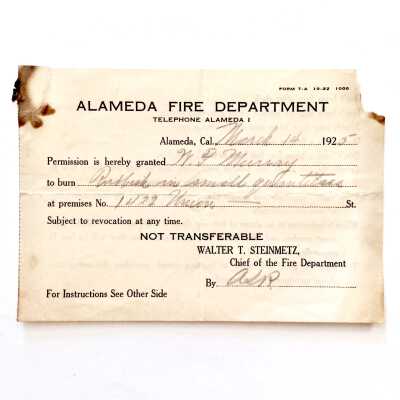 FORM T-2 12-22 1000
ALAMEDA FIRE DEPARTMENT
TELEPHONE ALAMEDA 1
Alameda, Cal. March 14 1925
Permission is hereby granted W. P. Murray
to burn Rubbish in small quantities
at premises No. 1422 Union — St.
Subject to revocation at any time.
NOT TRANSFERABLE
WALTER T. STEINMETZ,
Chief of the Fire Department
By
For Instructions See Other Side